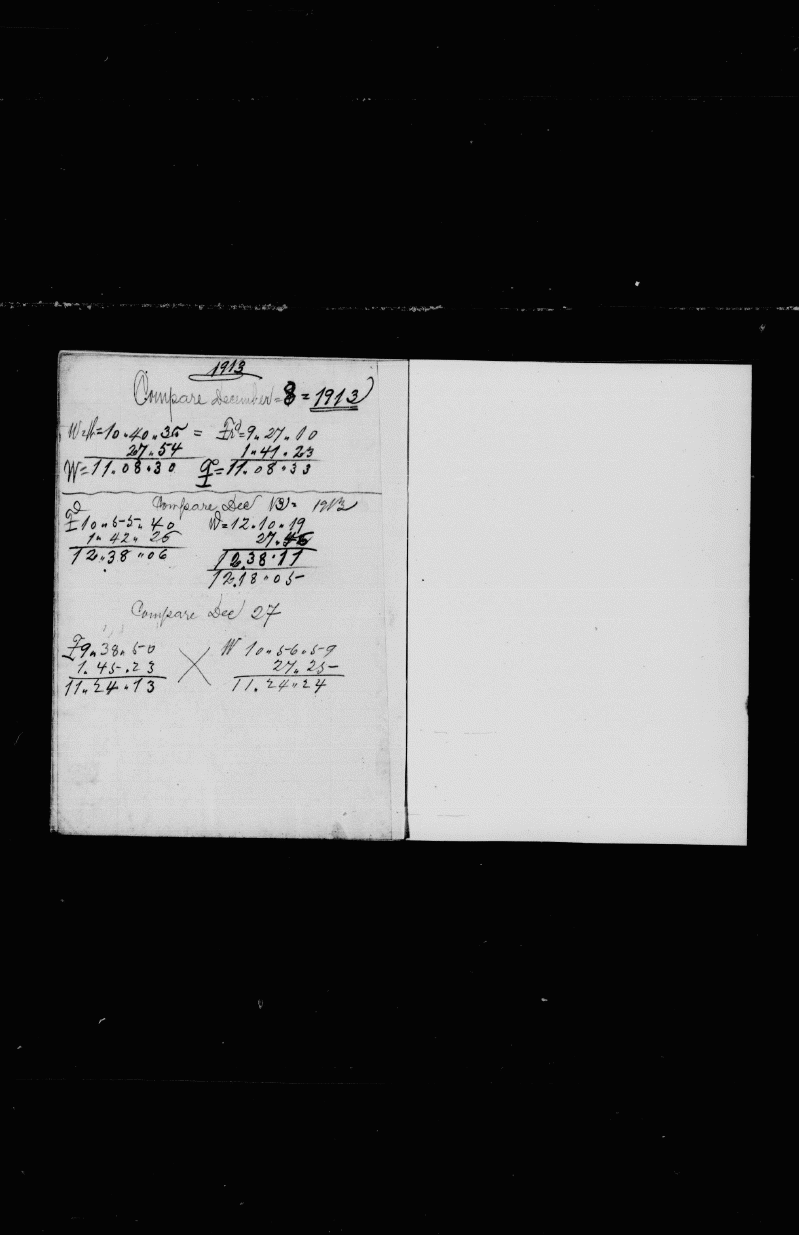 1913
Compare December = 8 = 1913
W = 10 " 40 " 36 = Fr = 9 " 27 " 10
27 " 54 1 " 41 " 23
W = 11 " 08 " 30 = 11 " 08 " 33
Compare Dec 13 = 1913
10 " 55 " 40 W = 12 " 10 " 19
1 " 42 " 26 27 "
12 " 38 " 06 12.38 " 11
12.18 " 05
Compare Dec 27
9 " 38 " 50 W 10 " 56 " 59
1 . 45 . 23 27 " 25
11 " 24 " 13 11 . 24 " 24